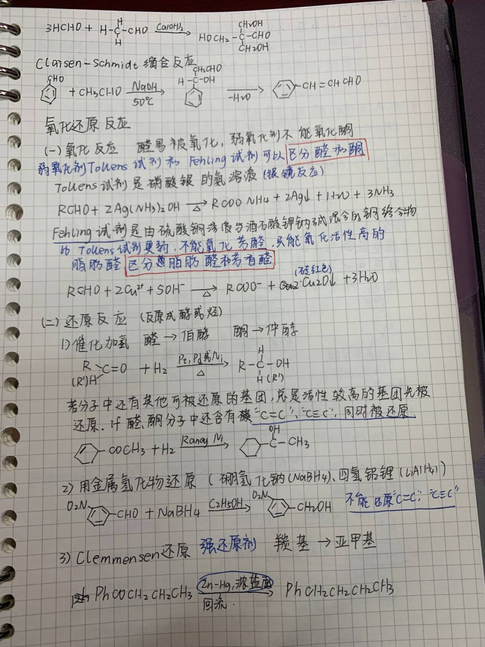 3HCHO + H-C-CHO Ca(OH)2 → HOCH2-C-CHO
H H CH2OH CH2OH
Claisen-Schmidt 缩合反应
CHO + CH3CHO NaOH 50℃ → H-C-OH CH2CHO -H2O → CH=CHCHO
氧化还原反应
(一) 氧化反应 醛易被氧化, 弱氧化剂不能氧化酮
弱氧化剂Tollens试剂和Fehling试剂可以区分醛和酮
Tollens试剂是硝酸银的氨溶液 (银镜反应)
RCHO + 2Ag(NH3)2OH →△ RCOONH4 + 2Ag↓ + H2O + 3NH3
Fehling试剂是由硫酸铜溶液与酒石酸钾钠碱混合的铜络合物
比Tollens试剂更弱, 不能氧化芳醛, 只能氧化活性高的
脂肪醛 区分脂肪醛和芳香醛
(砖红色)
RCHO + 2Cu2+ + 5OH- →△ RCOO- + Cu2O↓ + 3H2O
(二) 还原反应 (反原成醇或烃)
1) 催化加氢 醛→伯醇 酮→仲醇
R (R')H C=O + H2 Pt, Pd或Ni △ → R-C-OH H H(R')
若分子中还有其他可被还原的基团, 总是活性较高的基团先被
还原. If 醛、酮分子中还含有碳"C=C"、"C≡C", 同时被还原
COCH3 + H2 Raney Ni → C-CH3 OH
2) 用金属氢化物还原 (硼氢化钠(NaBH4)、四氢铝锂(LiAlH4))
O2N CHO + NaBH4 C2H5OH → O2N CH2OH 不能还原"C=C", "C≡C"
3) Clemmensen还原 强还原剂 羰基→亚甲基
PhCOCH2CH2CH3 Zn-Hg, 浓盐酸 回流. → PhCH2CH2CH2CH3